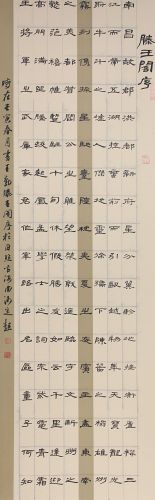 滕王閣序
南昌故郡洪都新府星分翼軫地接衡廬襟三
江而帶五湖控蠻荊而引甌越物華天寶龍光
射牛斗之墟人傑地靈徐孺下陳蕃之榻雄州
霧列俊采星馳臺隍枕夷夏之交賓主盡東南
之美都督閻公之雅望棨戟遙臨宇文新州之
懿範襜帷暫駐十旬休假勝友如雲千里逢迎
高朋滿座騰蛟起鳳孟學士之詞宗紫電青霜
王將軍之武庫家君作宰路出名區童子何知
時在壬寅春月書王勃滕王閣序於